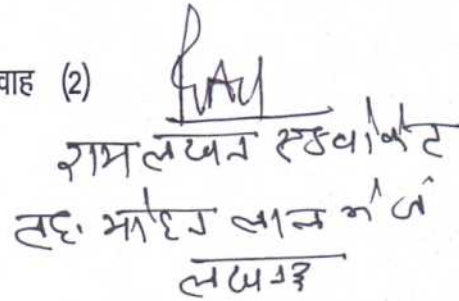 वाह (2)
रामलखन एडवोकेट
तह. मोहन लाल गंज
लखनऊ